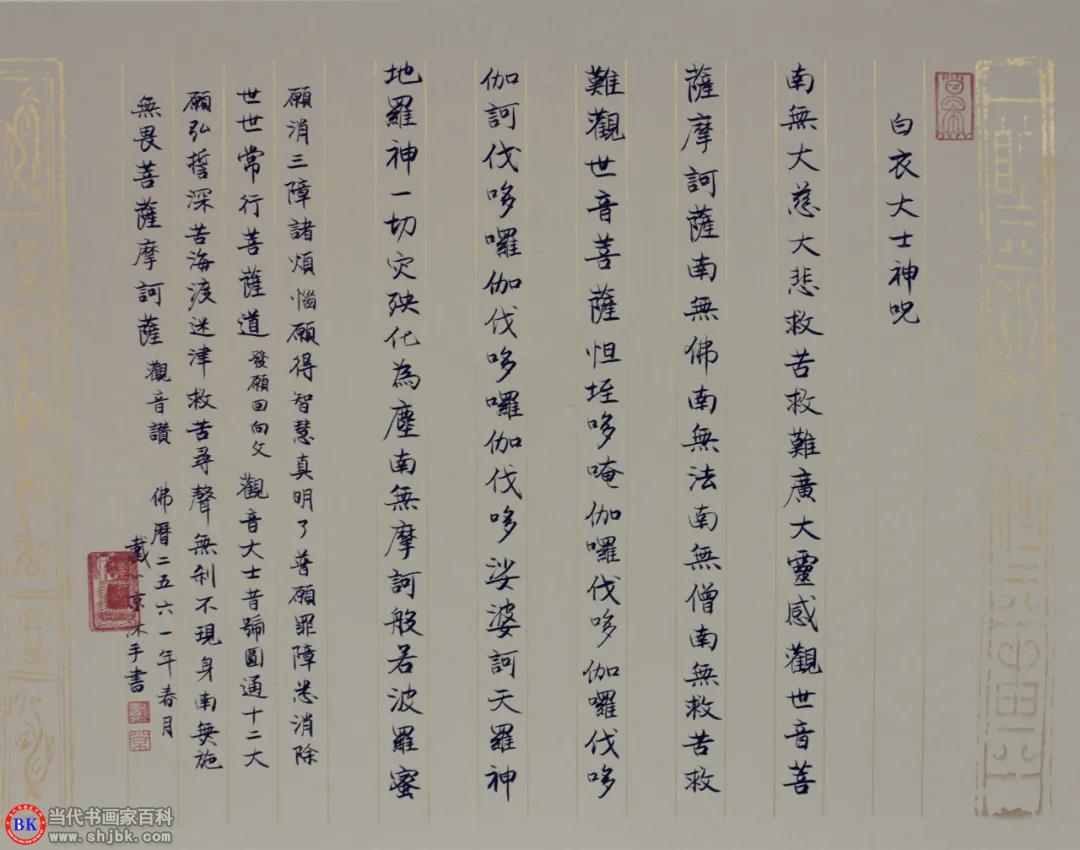 白衣大士神呪
南無大慈大悲救苦救難廣大靈感觀世音菩
薩摩訶薩南無佛南無法南無僧南無救苦救
難觀世音菩薩怛垤哆唵伽囉伐哆伽囉伐哆
伽訶伐哆囉伽伐哆囉伽伐哆娑婆訶天羅神
地羅神一切灾殃化為塵南無摩訶般若波羅蜜
願消三障諸煩惱願得智慧真明了普願罪障悉消除
世世常行菩薩道 發願回向文 觀音大士昔號圓通十二大
願弘誓深苦海渡迷津救苦尋聲無刹不現身南無施
無畏菩薩摩訶薩 觀音讃 佛曆二五六一年春月
戴京 手書
BK 当代书画家百科
www.shjbk.com